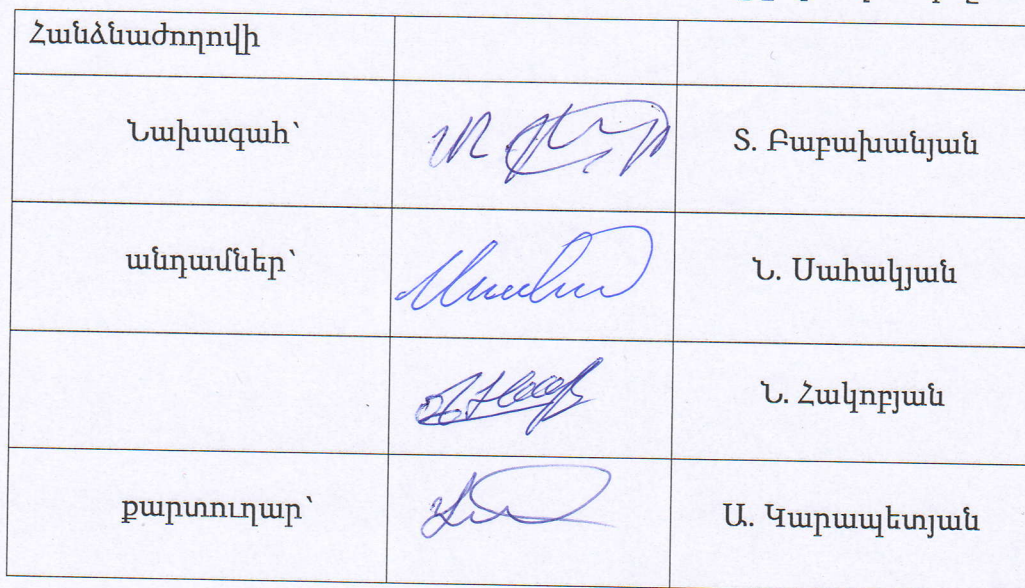 Հանձնաժողովի
Նախագահ՝ Տ. Բաբախանյան
անդամներ՝ Ն. Սահակյան
Ն. Հակոբյան
քարտուղար՝ Ա. Կարապետյան